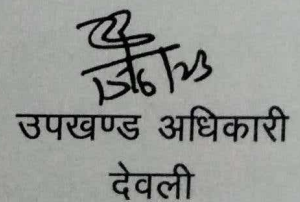 15/6/23
उपखण्ड अधिकारी
देवली